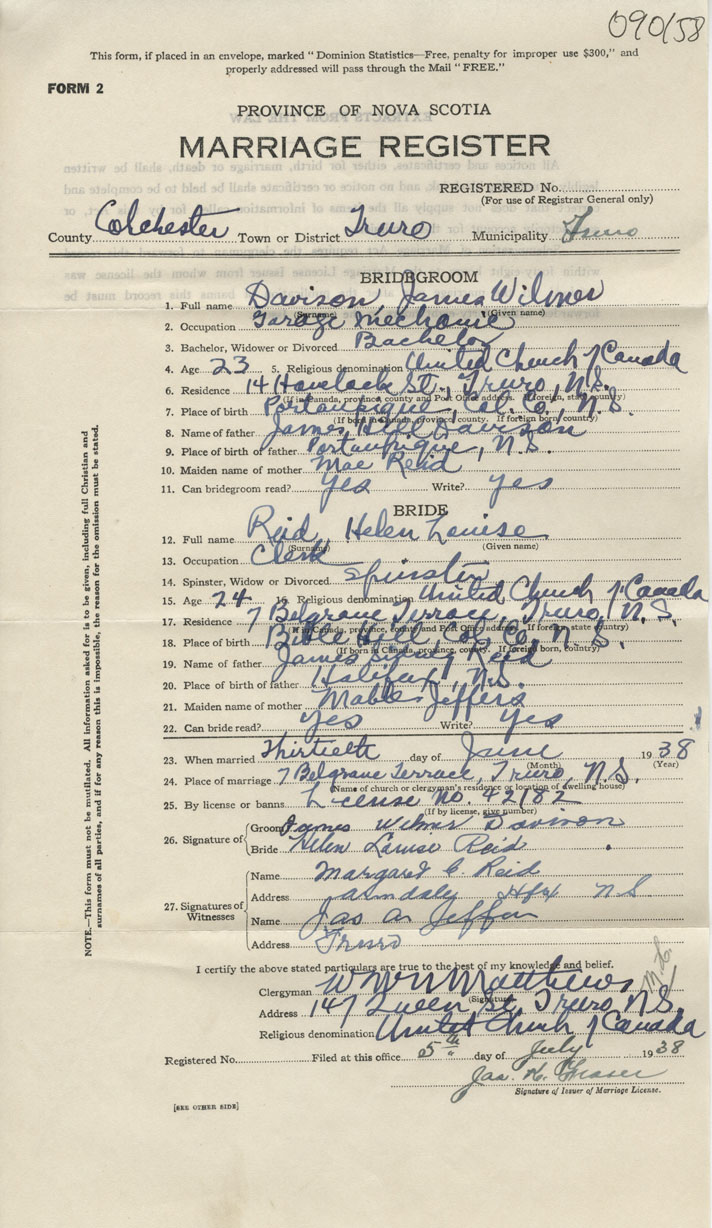 090/58
This form, if placed in an envelope, marked "Dominion Statistics—Free, penalty for improper use $300," and
properly addressed will pass through the Mail "FREE."
FORM 2
PROVINCE OF NOVA SCOTIA
MARRIAGE REGISTER
REGISTERED No.
(For use of Registrar General only)
County Colchester Town or District Truro Municipality Truro
BRIDEGROOM
1. Full name Davison, James Wilmer
(Surname) (Given name)
2. Occupation Garage Mechanic
3. Bachelor, Widower or Divorced Bachelor
4. Age 23 5. Religious denomination United Church of Canada
6. Residence 14 Havelock St., Truro, N.S.
(If in Canada, province, county and Post Office address. If foreign, state country)
7. Place of birth Portaupique, Col. Co., N.S.
(If born in Canada, province, county. If foreign born, country)
8. Name of father James Davison
9. Place of birth of father Portaupique, N.S.
10. Maiden name of mother Mae Reid
11. Can bridegroom read? Yes Write? Yes
BRIDE
12. Full name Reid, Helen Louise
(Surname) (Given name)
13. Occupation Clerk
14. Spinster, Widow or Divorced Spinster
15. Age 24 16. Religious denomination United Church of Canada
17. Residence 7 Belgrave Terrace, Truro, N.S.
(If in Canada, province, county and Post Office address. If foreign state country)
18. Place of birth Bible Hill Col. Co. N.S.
(If born in Canada, province, county. If foreign born, country)
19. Name of father James Reid
20. Place of birth of father Halifax, N.S.
21. Maiden name of mother Mable Jeffers
22. Can bride read? Yes Write? Yes
23. When married Thirtieth day of June 1938
(Month) (Year)
24. Place of marriage 7 Belgrave Terrace, Truro, N.S.
(Name of church or clergyman's residence or location of dwelling house)
25. By license or banns License No. 42182
(If by license, give number)
26. Signature of Groom James Wilmer Davison
Bride Helen Louise Reid
27. Signatures of Witnesses
Name Margaret C. Reid
Address Armdale Hfx NS
Name Jas A. Jeffers
Address Truro
I certify the above stated particulars are true to the best of my knowledge and belief.
Clergyman Matthews
(Signature)
Address 147 Queen St. Truro, N.S.
Religious denomination United Church of Canada
Registered No. Filed at this office 5th day of July 1938
Jas. Fraser
Signature of Issuer of Marriage License.
[SEE OTHER SIDE]
NOTE.—This form must not be mutilated. All information asked for is to be given, including full Christian and
surnames of all parties, and if for any reason this is impossible, the reason for the omission must be stated.